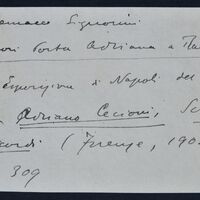 Signorini
Porta Adriana a Ra
Esposizione di Napoli del
Adriano Cecioni, Sc
cordi (Firenze, 190
309